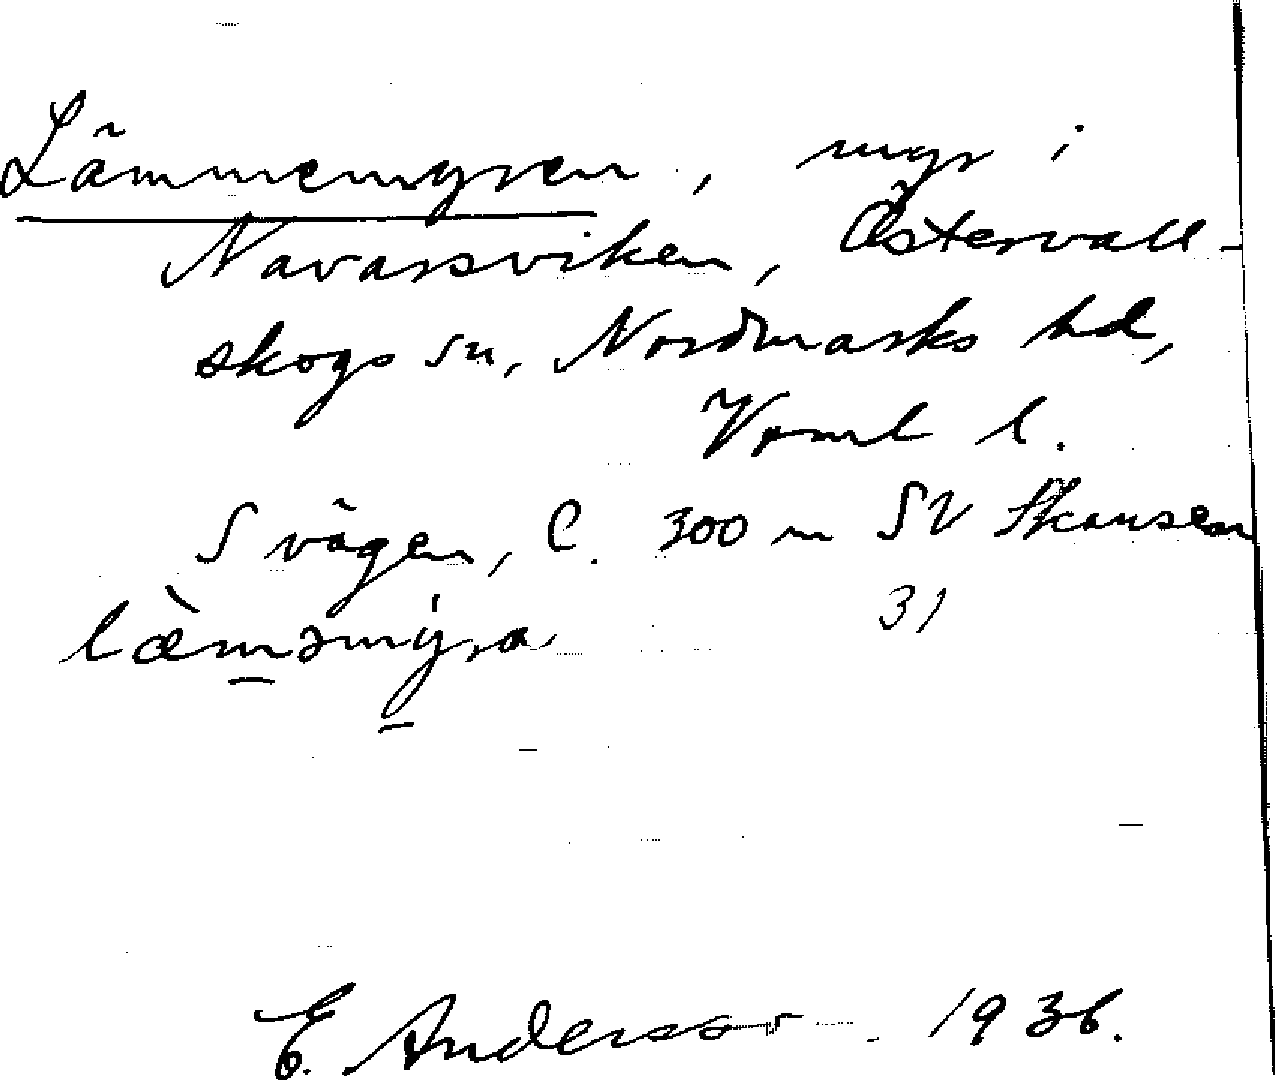 Lämmemyren, myr i
Navarsviken, Östervall-
skogs sn, Nordmarks hd,
Värml l.
S vägen, c. 300 m SV Skansen
31
læ̀mǝmýra
E. Andersson 1936.